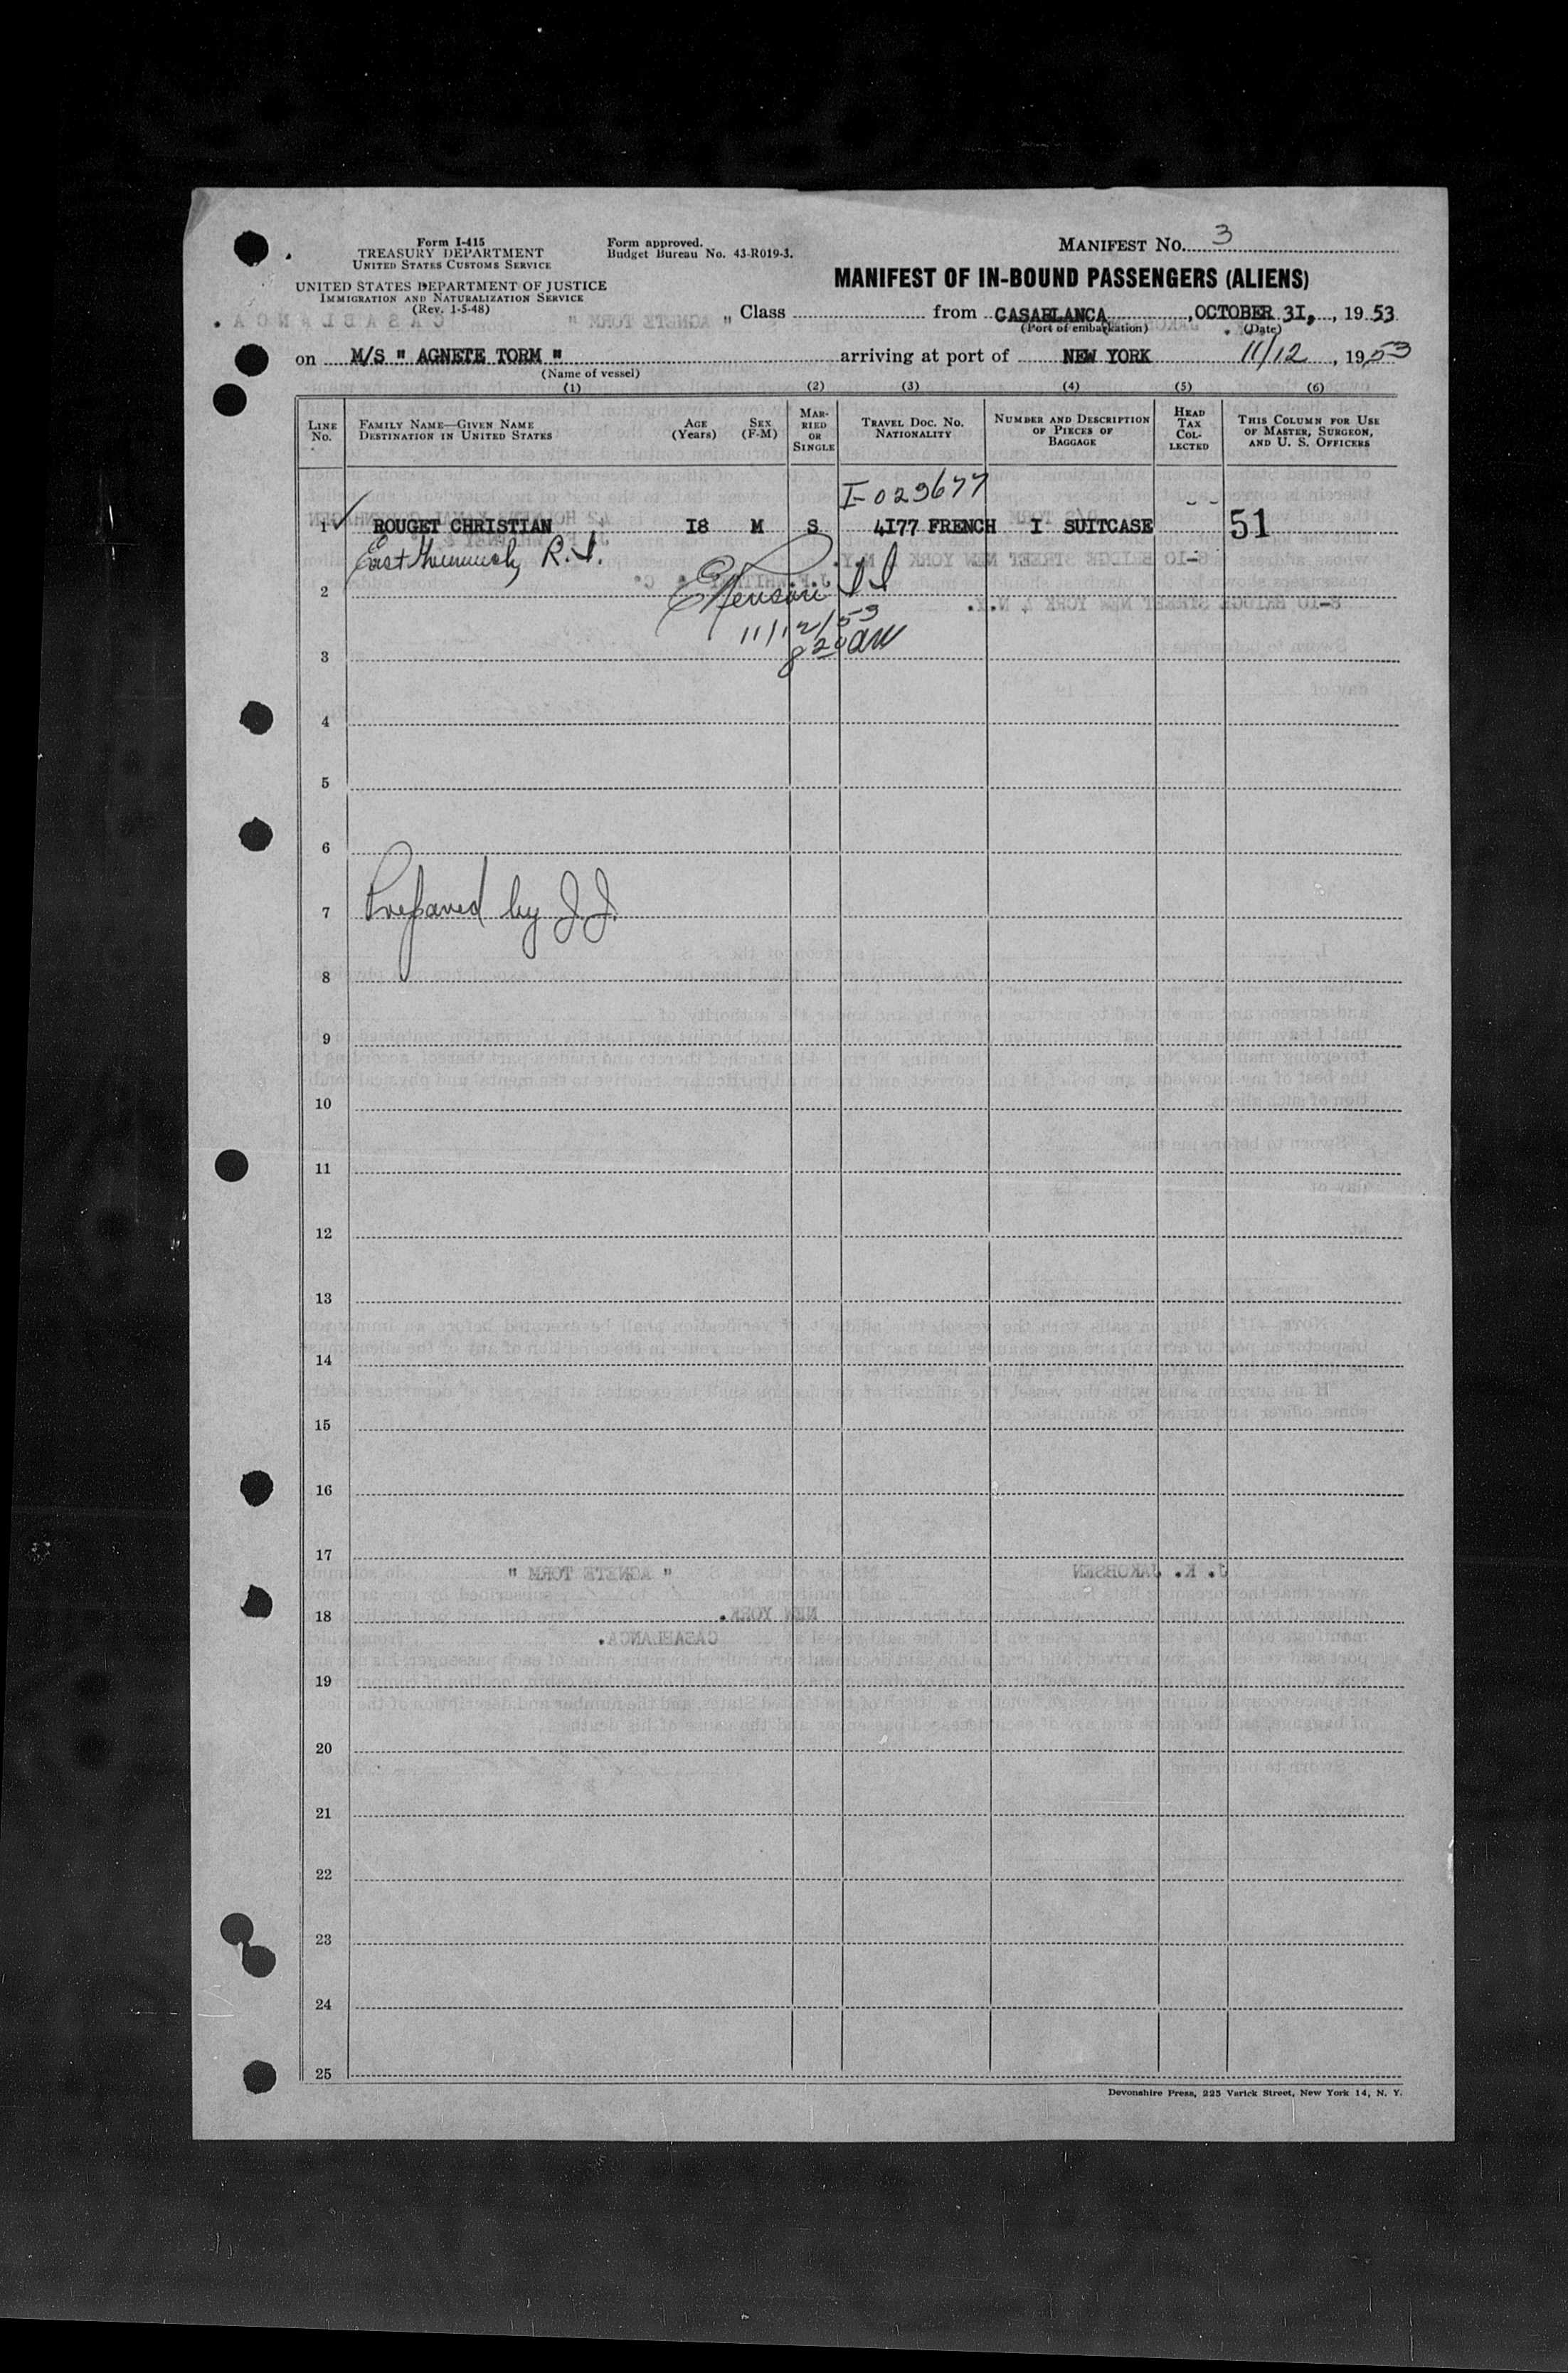 Form I-415
TREASURY DEPARTMENT
UNITED STATES CUSTOMS SERVICE
UNITED STATES DEPARTMENT OF JUSTICE
IMMIGRATION AND NATURALIZATION SERVICE
(Rev. 1-5-48)
Form approved.
Budget Bureau No. 43-R019-3.
MANIFEST NO. 3
MANIFEST OF IN-BOUND PASSENGERS (ALIENS)
Class from CASABLANCA, OCTOBER 3I, , 19 53
(Port of embarkation) (Date)
on M/S " AGNETE TORM " arriving at port of NEW YORK 11/12, 19 53
(Name of vessel)
(1) (2) (3) (4) (5) (6)
LINE NO. FAMILY NAME—GIVEN NAME DESTINATION IN UNITED STATES AGE (Years) SEX (F-M) MARRIED OR SINGLE TRAVEL DOC. NO. NATIONALITY NUMBER AND DESCRIPTION OF PIECES OF BAGGAGE HEAD TAX COLLECTED THIS COLUMN FOR USE OF MASTER, SURGEON, AND U. S. OFFICERS
I-023677
1 ROUGET CHRISTIAN I8 M S 4I77 FRENCH I SUITCASE 51
East R.I.
2
11/12/53
3 820 AM
4
5
6
7 Prepared by J.J.
8
9
10
11
12
13
14
15
16
17
18
19
20
21
22
23
24
25
Devonshire Press, 225 Varick Street, New York 14, N. Y.